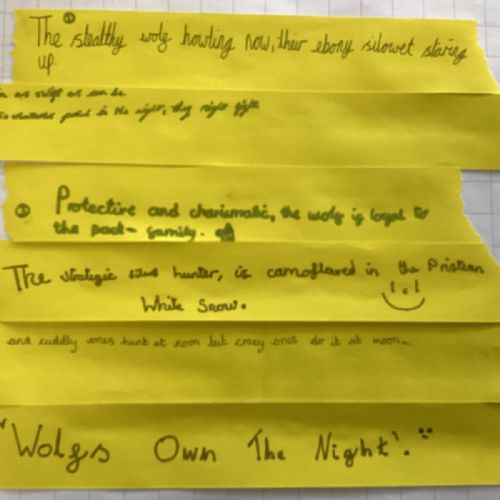 The stealthy wolf howling now, their ebony silowet staring
up.
as swift as can be
in the night, they night
① Protective and charismatic, the wolf is loyal to
the pack- family.
The strategic hunter, is camoflared in the Pristean
White Snow.
and cuddly ones hunt at noon but crazy ones do it at moon.
'Wolfs Own The Night'.